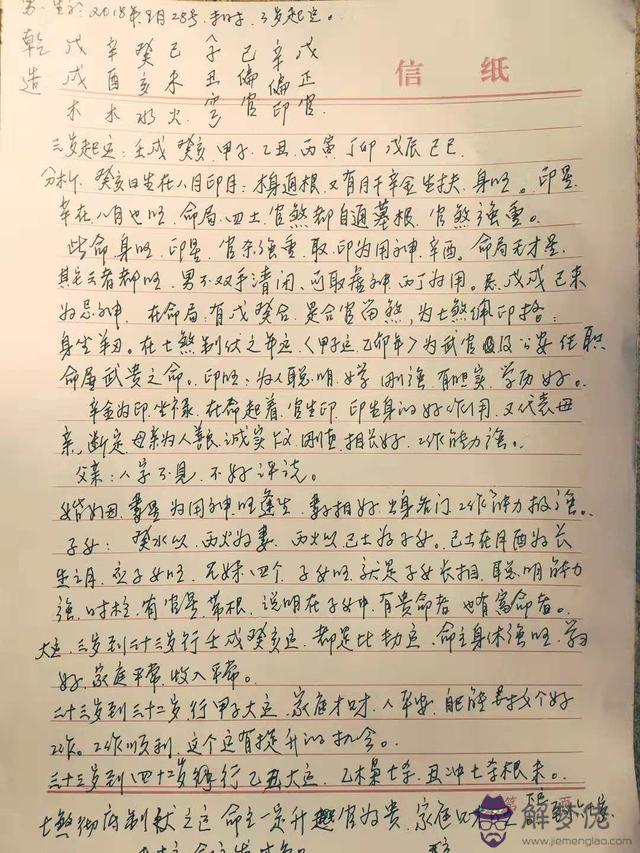 男:生于:2018年8月28号.
乾 戊 辛 癸 己 令 己 辛 戊
造 戌 酉 亥 未 丑 偏 偏 正
木 木 水 火 官 印 官
信 纸
三岁起运:壬戌 癸亥.甲子.乙丑.丙寅 丁卯 戊辰 己巳.
分析:癸亥日生在八月印月:水身通根.又有月干辛金生扶.身旺。印星
辛在八月也旺.命局.四土.官煞都自通墓根.官煞强重。
此命.身旺.印星.官杀强重.取.印为用神.辛酉。命局无才星.
其它五者都旺.男不双手清闲.可取虚神 丙丁为用。忌.戊戌己未
为忌神.在命局.有戊癸合.是合官留煞,为七煞佩印格:
身坐羊刃。在七煞制伏之年运〈甲子运.乙卯年〉为武官以及公安任职
命局武贵之命。印旺:为人聪明.好学 刚强.有胆实.学历好。
辛金为印.坐禄.在命起着.官生印.印生身的好作用.又代表母
亲,断定.母亲为人善良.诚实 刚直.相长好.工作能力强。
父亲:八字不见.不好评说。
婚姻:妻星为用神旺逢生.妻相好.出身名门 工作能力极强。
子女:癸水以.丙火为妻.丙火以己土为子女。己土在月酉为长
生之月.应子女旺.兄妹四个.子女旺.就是子女长相.聪明.能力
强.时柱.有官星.带根.说明在子女中.有贵命者也有富命者。
大运.三岁到二十三岁行壬戌癸亥运.都是比劫运.命主身体强旺.学习
好.家庭平常.收入平常。
二十三岁到三十二岁行甲子大运.家庭才旺.人平安.自能寻找个好
工作。工作顺利.这个运有提升的机会。
三十三岁到四十二岁行乙丑大运.乙木枭七杀.丑冲七杀根未。
七煞彻底制伏之运 命主一定升官为贵.家庭
解梦佬
www.jiemenglao.com